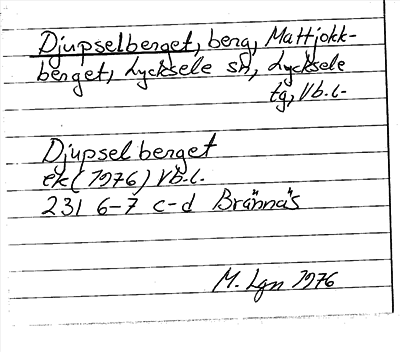 Djupselberget, berg, Mattjokk-
berget, Lycksele sn, Lycksele
tg, Vb.l.
Djupselberget
ek (1976) Vb.l.
231 6-7 c-d Brännäs
M. Lgn 1976